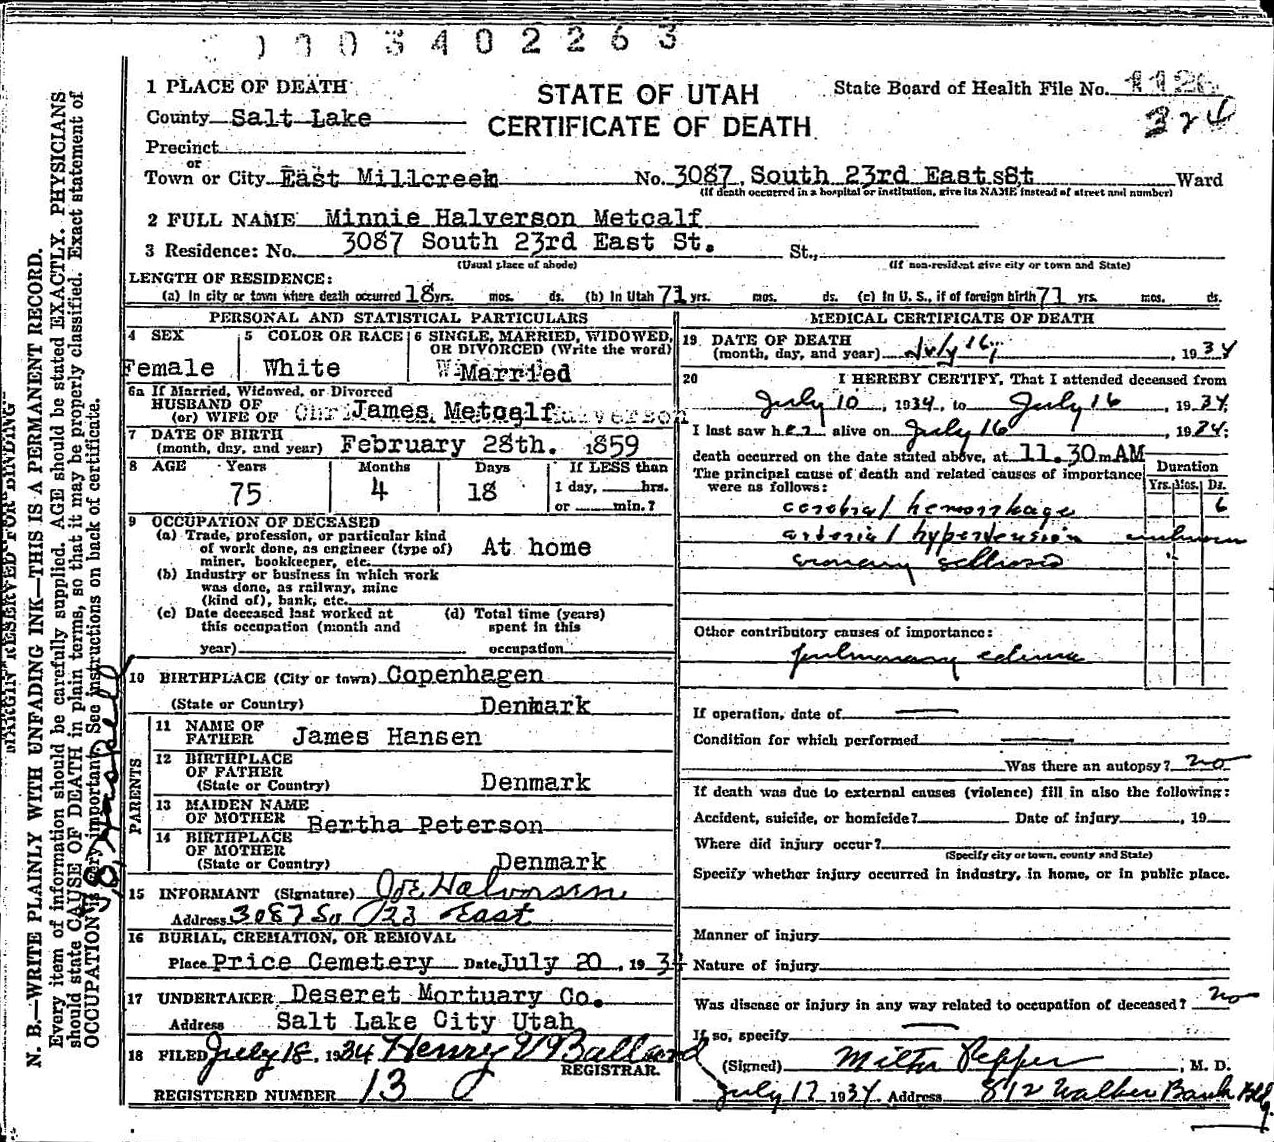 0003402263
1 PLACE OF DEATH
STATE OF UTAH
CERTIFICATE OF DEATH
State Board of Health File No. 1126
324
County Salt Lake
Precinct
or
Town or City East Millcreek No. 3087 South 23rd East St Ward
(If death occurred in a hospital or institution, give its NAME instead of street and number)
2 FULL NAME Minnie Halverson Metcalf
3 Residence: No. 3087 South 23rd East St. St.,
(Usual place of abode) (If non-resident give city or town and State)
LENGTH OF RESIDENCE:
(a) In city or town where death occurred 18 yrs. mos. ds. (b) In Utah 71 yrs. mos. ds. (c) In U. S., if of foreign birth 71 yrs. mos. ds.
PERSONAL AND STATISTICAL PARTICULARS
4 SEX
Female
5 COLOR OR RACE
White
6 SINGLE, MARRIED, WIDOWED,
OR DIVORCED (Write the word)
Married
6a If Married, Widowed, or Divorced
HUSBAND OF
(or) WIFE OF James Metcalf
7 DATE OF BIRTH
(month, day, and year) February 28th. 1859
8 AGE Years Months Days If LESS than
75 4 18 1 day, hrs.
or min.?
9 OCCUPATION OF DECEASED
(a) Trade, profession, or particular kind
of work done, as engineer (type of)
miner, bookkeeper, etc. At home
(b) Industry or business in which work
was done, as railway, mine
(kind of), bank, etc.
(c) Date deceased last worked at
this occupation (month and
year)
(d) Total time (years)
spent in this
occupation
10 BIRTHPLACE (City or town) Copenhagen
(State or Country) Denmark
PARENTS
11 NAME OF
FATHER James Hansen
12 BIRTHPLACE
OF FATHER
(State or Country) Denmark
13 MAIDEN NAME
OF MOTHER Bertha Peterson
14 BIRTHPLACE
OF MOTHER
(State or Country) Denmark
15 INFORMANT (Signature) Joe Halvorsen
Address 3087 So 23 East
16 BURIAL, CREMATION, OR REMOVAL
Place Price Cemetery Date July 20, 1934
17 UNDERTAKER Deseret Mortuary Co.
Address Salt Lake City Utah
18 FILED July 18, 1934 Henry V Ballard
REGISTRAR.
REGISTERED NUMBER 13
MEDICAL CERTIFICATE OF DEATH
19 DATE OF DEATH
(month, day, and year) July 16, 1934
20 I HEREBY CERTIFY, That I attended deceased from
July 10, 1934, to July 16, 1934.
I last saw her alive on July 16 1934.
death occurred on the date stated above, at 11.30 m AM
The principal cause of death and related causes of importance
were as follows:
Duration
Yrs. Mos. Ds.
cerebral hemorrhage 6
arterial hypertension unknown
coronary sclerosis "
Other contributory causes of importance:
pulmonary edema
If operation, date of
Condition for which performed
Was there an autopsy? no
If death was due to external causes (violence) fill in also the following:
Accident, suicide, or homicide? Date of injury , 19
Where did injury occur?
(Specify city or town, county and State)
Specify whether injury occurred in industry, in home, or in public place.
Manner of injury
Nature of injury
Was disease or injury in any way related to occupation of deceased? no
If so, specify
(Signed) Milton Pepper, M. D.
July 17 1934 Address 812 Walker Bank Bldg
MARGIN RESERVED FOR BINDING
N. B.—WRITE PLAINLY WITH UNFADING INK—THIS IS A PERMANENT RECORD.
Every item of information should be carefully supplied. AGE should be stated EXACTLY. PHYSICIANS
should state CAUSE OF DEATH in plain terms, so that it may be properly classified. Exact statement of
OCCUPATION is very important. See instructions on back of certificate.